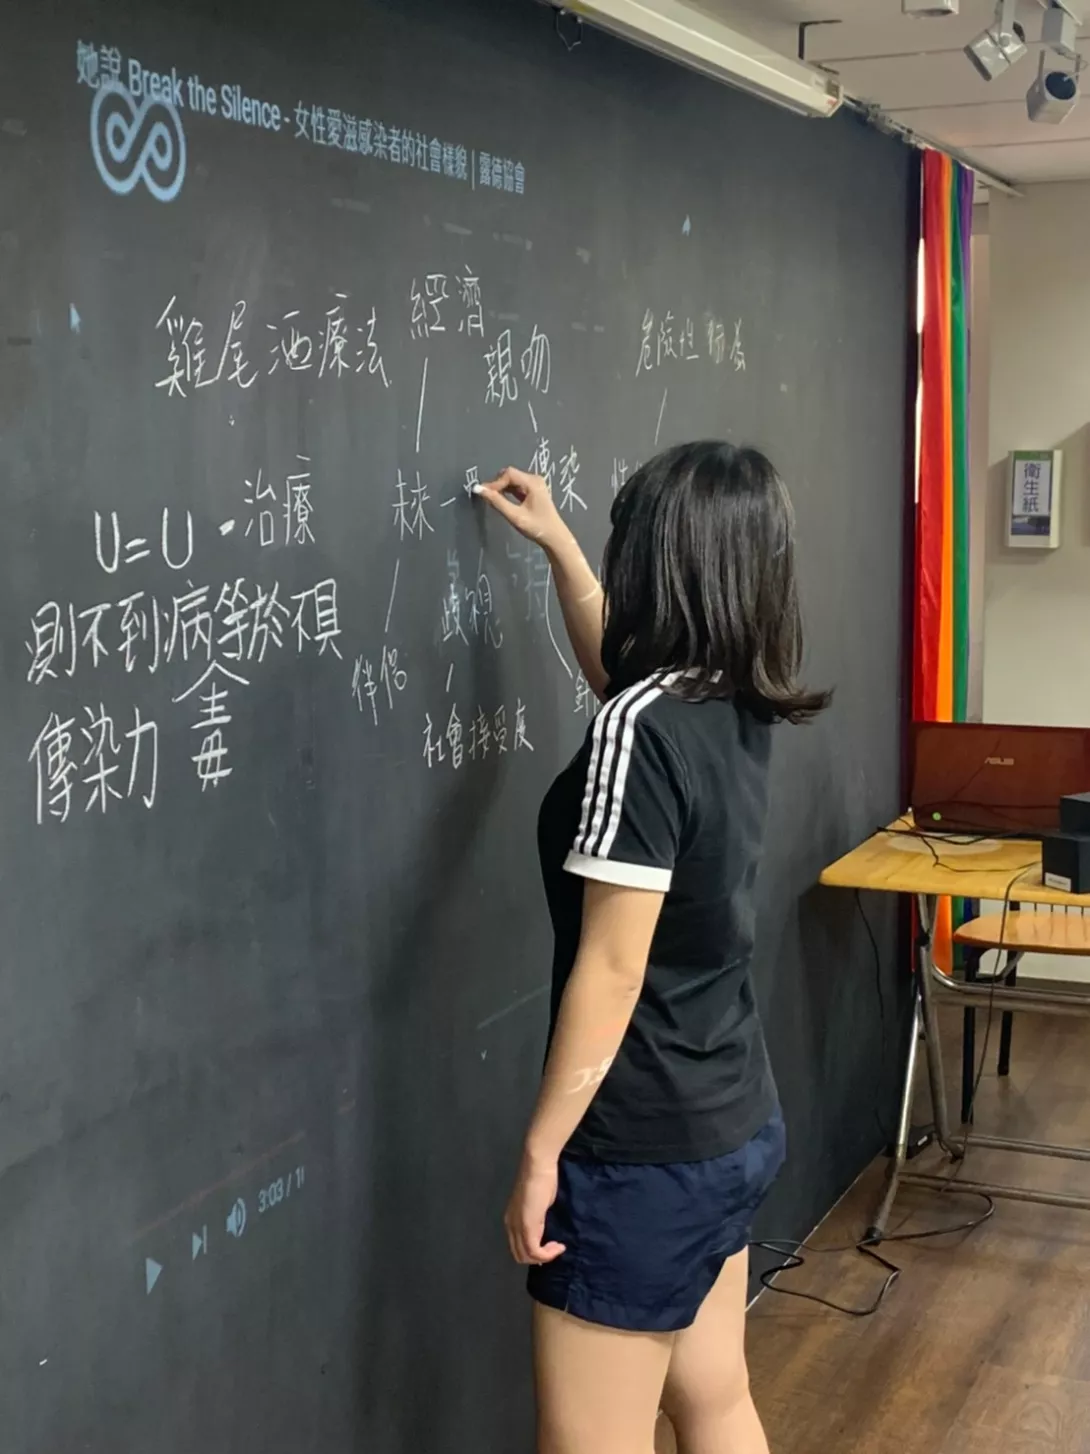 她說 Break the Silence - 女性愛滋感染者的社會樣貌 | 露德協會
雞尾酒療法
經濟
親吻
危險性行為
傳染
未來
U=U
治療
歧視
測不到病毒等於不具
傳染力
伴侶
社會接受度
3:03 / 1
衛生紙
ASUS